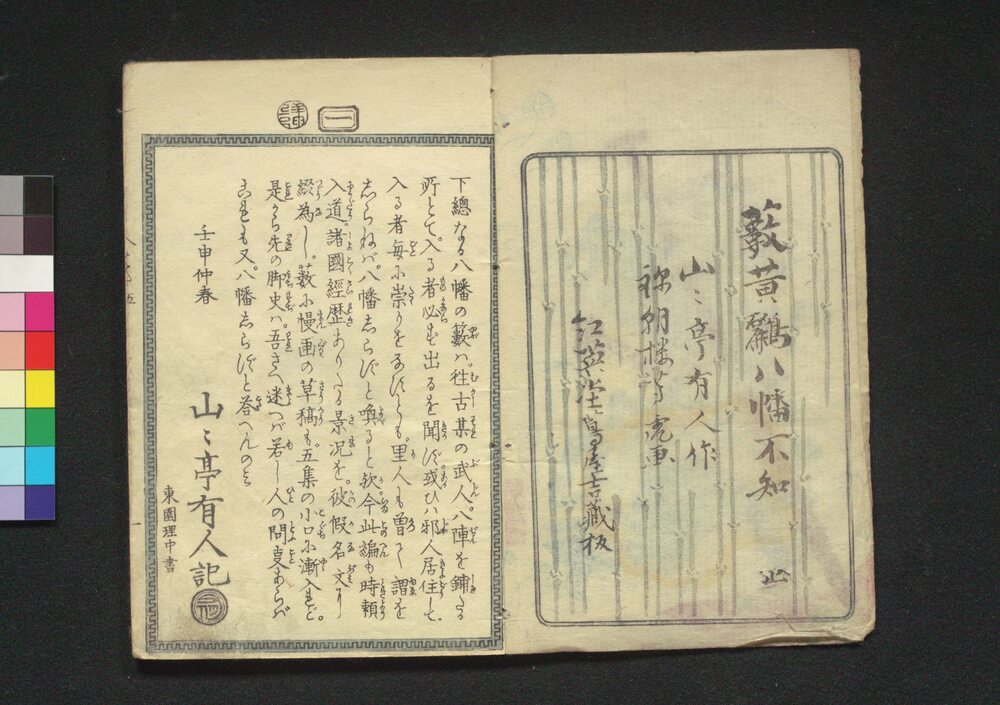 藪黄鸝八幡不知
山々亭有人作
孫朝楼芳虎画
紅英堂蔦屋吉蔵板
一
下總なる八幡の籔ハ。往古某の武人。八陣を鋪たる
所とて。入る者必ず出るを聞ず。或ひハ邪人居住して。
入る者毎に崇りをなすとも。里人も曽て謂を
しらねバ。八幡しらずと喚ると欤今此諞も時頼
入道。諸國經歴ありたる景况を。彼假名文に
綴為し。藪に慢画の草稿も。五集の小口に漸入れど。
是から先の脚史ハ。吾さへ迷へバ若し人の問事あらバ
これも又。八幡しらずと答へんのミ
壬申仲春
山々亭有人記
東園理中書